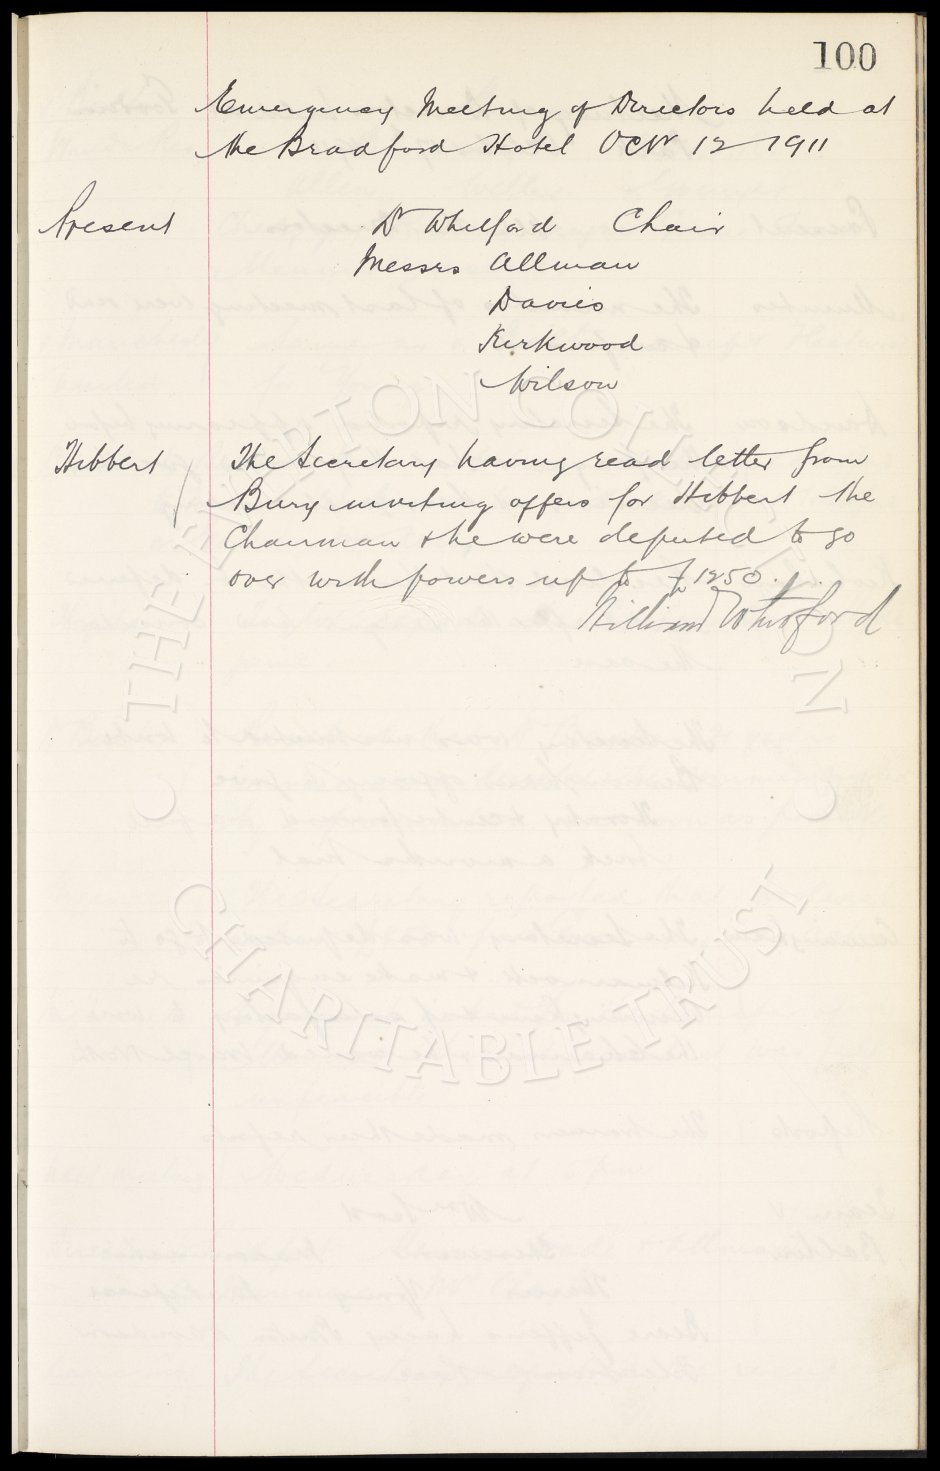 100
Emergency Meeting of Directors held at
the Bradford Hotel Octr 12 1911
Present Dr Whitford Chair
Messrs Allman
Davies
Kirkwood
Wilson
Hibbert The Secretary having read letter from
Bury inviting offers for Hibbert the
Chairman & he were deputed to go
over with powers up to £1250.
William Whitford
© THE EVERTON COLLECTION ©
CHARITABLE TRUST